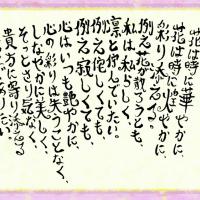 花は時に華やかに、
花は時に煌びやかに、
彩り添える。
例え花が散うとも、
私は、私らしく、
凛と佇んでいたい。
例え侘しくても、
例え寂しくても、
心はいつも艶やかに、
心の彩りは失うことなく、
しなやかに美しく、
そっとさり気なく、
貴方に寄り添える